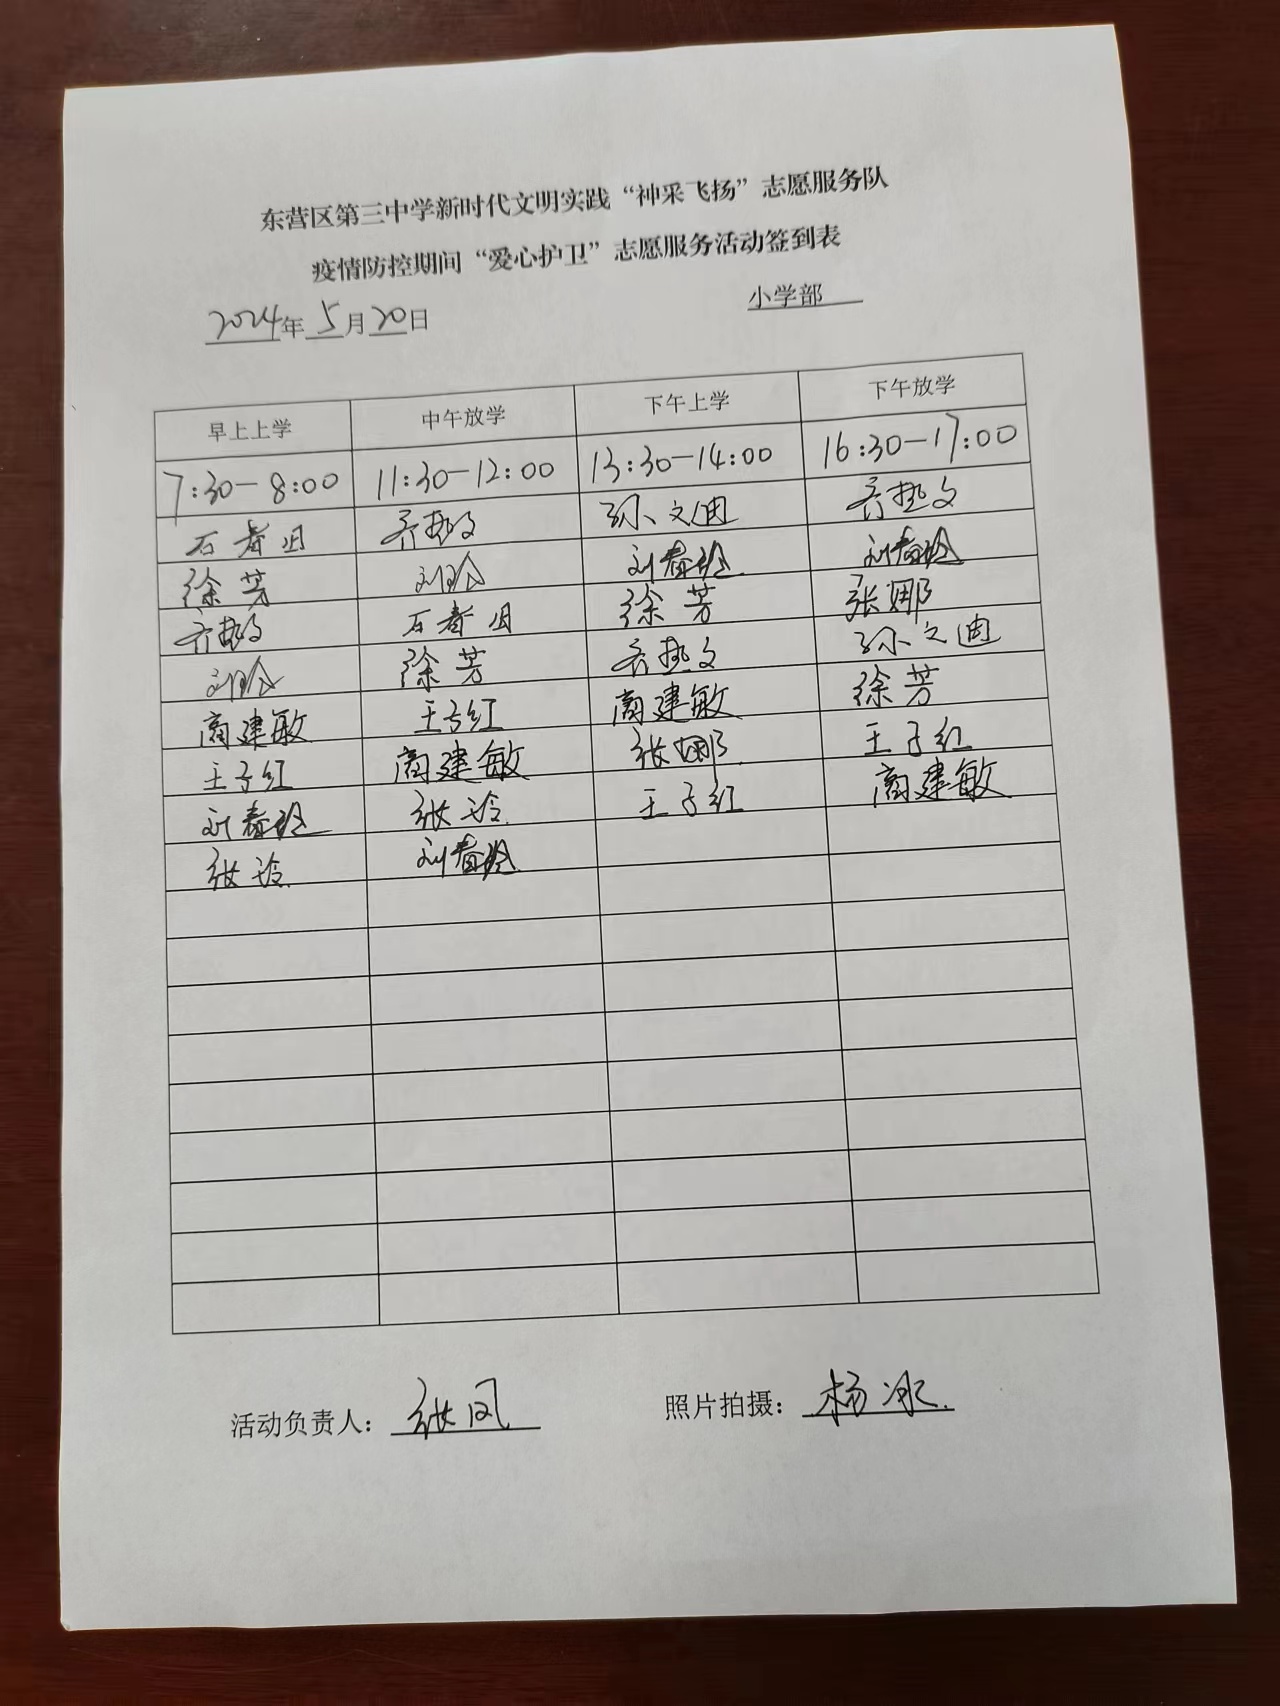 东营区第三中学新时代文明实践“神采飞扬”志愿服务队
疫情防控期间“爱心护卫”志愿服务活动签到表
2024年 5月20日 小学部
早上上学 中午放学 下午上学 下午放学
7:30-8:00 11:30-12:00 13:30-14:00 16:30-17:00
石春 孙文迪
徐芳 刘春玲 刘春玲
徐芳 张娜
徐芳 孙文迪
商建敏 王子红 商建敏 徐芳
王子红 商建敏 张娜 王子红
刘春玲 张玲 王子红 商建敏
张玲 刘春玲
活动负责人: 张凤 照片拍摄: 杨冰